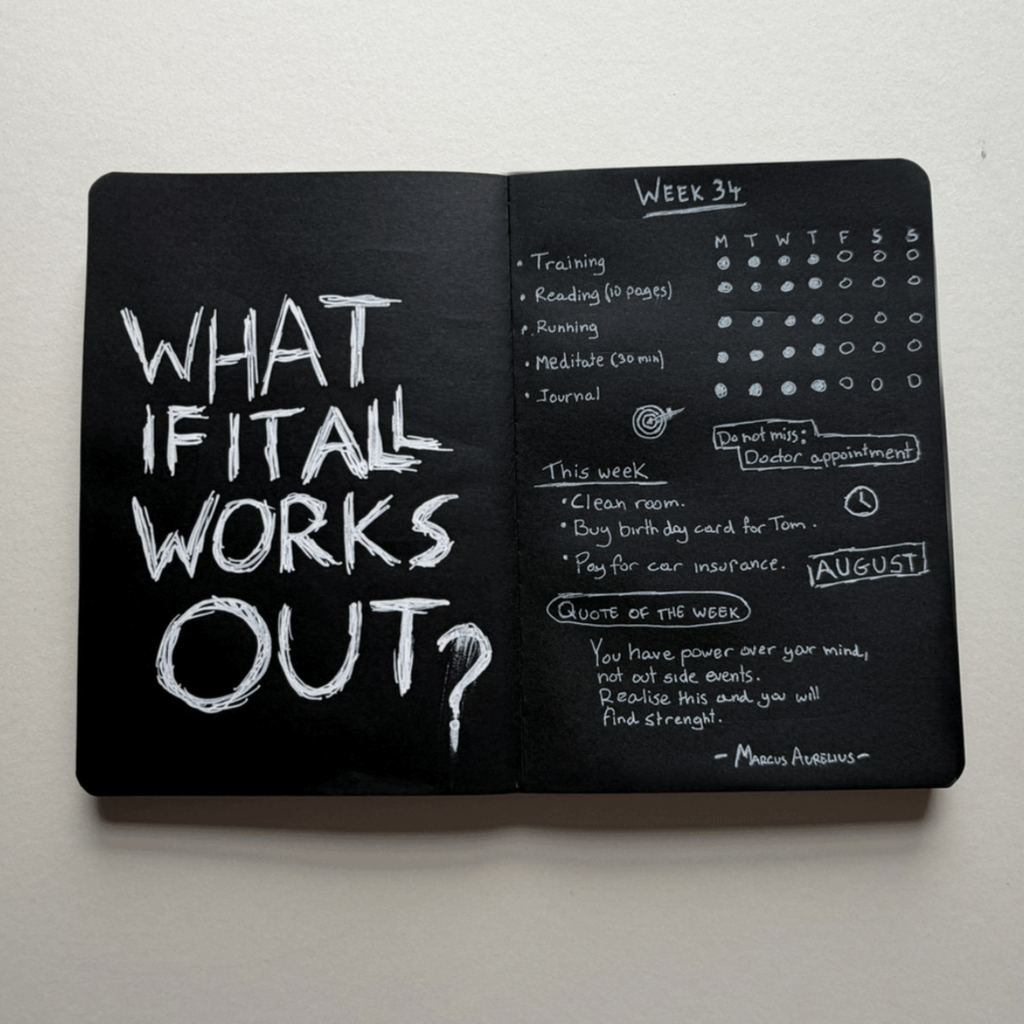 WHAT
IF IT ALL
WORKS
OUT?
WEEK 34
M T W T F S S
• Training
• Reading (10 pages)
• Running
• Meditate (30 min)
• Journal
Do not miss:
Doctor appointment
This week
• Clean room.
• Buy birthday card for Tom.
• Pay for car insurance.
AUGUST
QUOTE OF THE WEEK
You have power over your mind,
not out side events.
Realise this and you will
find strenght.
- MARCUS AURELIUS -